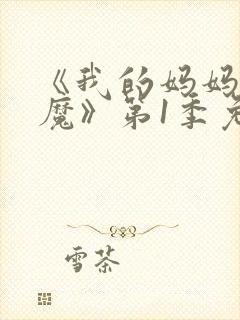 《我的妈妈
魔》第1季
雪茶